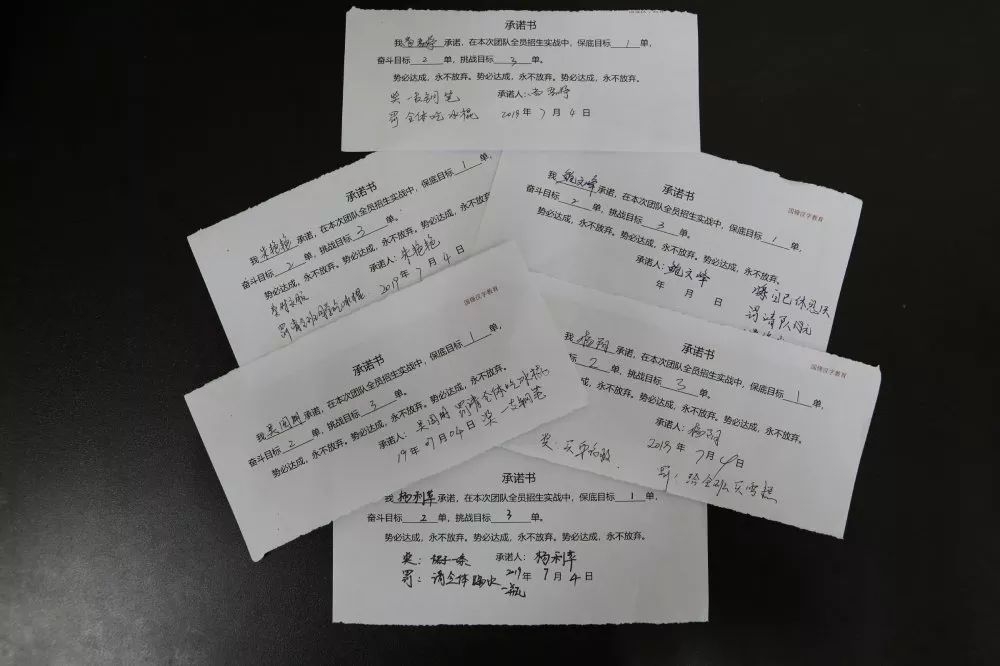 承诺书
我承诺，在本次团队全员招生实战中，保底目标1单，
奋斗目标2单，挑战目标3单。
势必达成，永不放弃。势必达成，永不放弃。势必达成，永不放弃。
奖 一支钢笔 承诺人：
罚 全体吃冰棍 2019年7月4日
承诺书
我朱艳艳承诺，在本次团队全员招生实战中，保底目标1单，
奋斗目标2单，挑战目标3单。
势必达成，永不放弃。势必达成，永不放弃。势必达成，永不放弃。
承诺人：朱艳艳
2019年7月4日
罚请全班同学吃冰棍
国锋汉字教育
承诺书
我鲍文峰承诺，在本次团队全员招生实战中，保底目标1单，
奋斗目标2单，挑战目标3单。
势必达成，永不放弃。势必达成，永不放弃。势必达成，永不放弃。
承诺人：鲍文峰
年 月 日
自己休息
罚请队
国锋汉字教育
承诺书
我吴国明承诺，在本次团队全员招生实战中，保底目标1单，
奋斗目标2单，挑战目标3单。
势必达成，永不放弃。势必达成，永不放弃。势必达成，永不放弃。
承诺人：吴国明 罚请全体吃冰棍
19年07月04日 奖 一支钢笔
国锋汉字教育
承诺书
我杨翔承诺，在本次团队全员招生实战中，保底目标1单，
标2单，挑战目标3单。
成，永不放弃。势必达成，永不放弃。势必达成，永不放弃。
承诺人：杨翔
2019年7月4日
奖：买
罚：给全班买雪糕
承诺书
我杨利华承诺，在本次团队全员招生实战中，保底目标1单，
奋斗目标2单，挑战目标3单。
势必达成，永不放弃。势必达成，永不放弃。势必达成，永不放弃。
奖：裙子一条 承诺人：杨利华
罚：请全体喝水一瓶 2019年7月4日